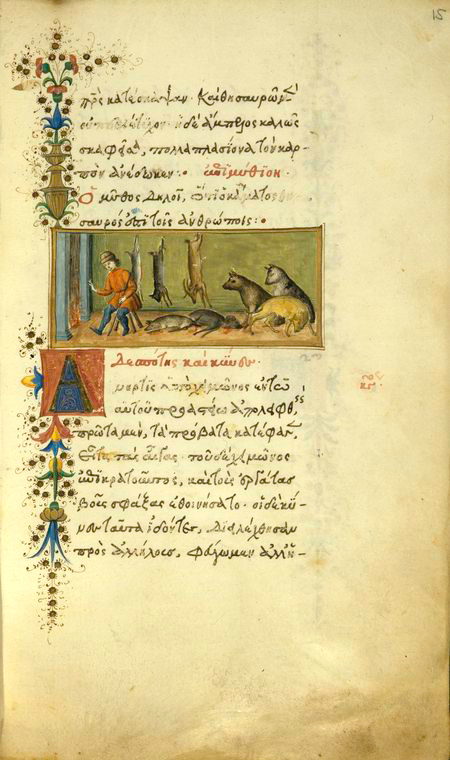 κατέσκαψαν. Καὶ θησαυρῷ μὲν
οὐ περιέτυχον. ἡ δὲ ἄμπελος καλῶς
σκαφεῖσα, πολλαπλασίονα τὸν καρ-
πὸν ἀνέδωκεν. ἐπιμύθιον.
Ὁ μῦθος δηλοῖ, ὅτι ὁ κάματος θη-
σαυρός ἐστι τοῖς ἀνθρώποις.
Δεσπότης καὶ κύνες.
Ἀνήρ τις ὑπὸ χειμῶνος ἐν τῷ
αὐτοῦ προαστείῳ ἀποληφθείς,
πρῶτα μὲν, τὰ πρόβατα κατέφαγεν,
εἶτα τὰς αἶγας. τοῦ δὲ χειμῶνος
ἐπικρατοῦντος, καὶ τοὺς ἐργάτας
βοῦς σφάξας ἐθοινήσατο. οἱ δὲ κύ-
νες ταῦτα ἰδόντες, διελέχθησαν
πρὸς ἀλλήλους, φύγωμεν
15